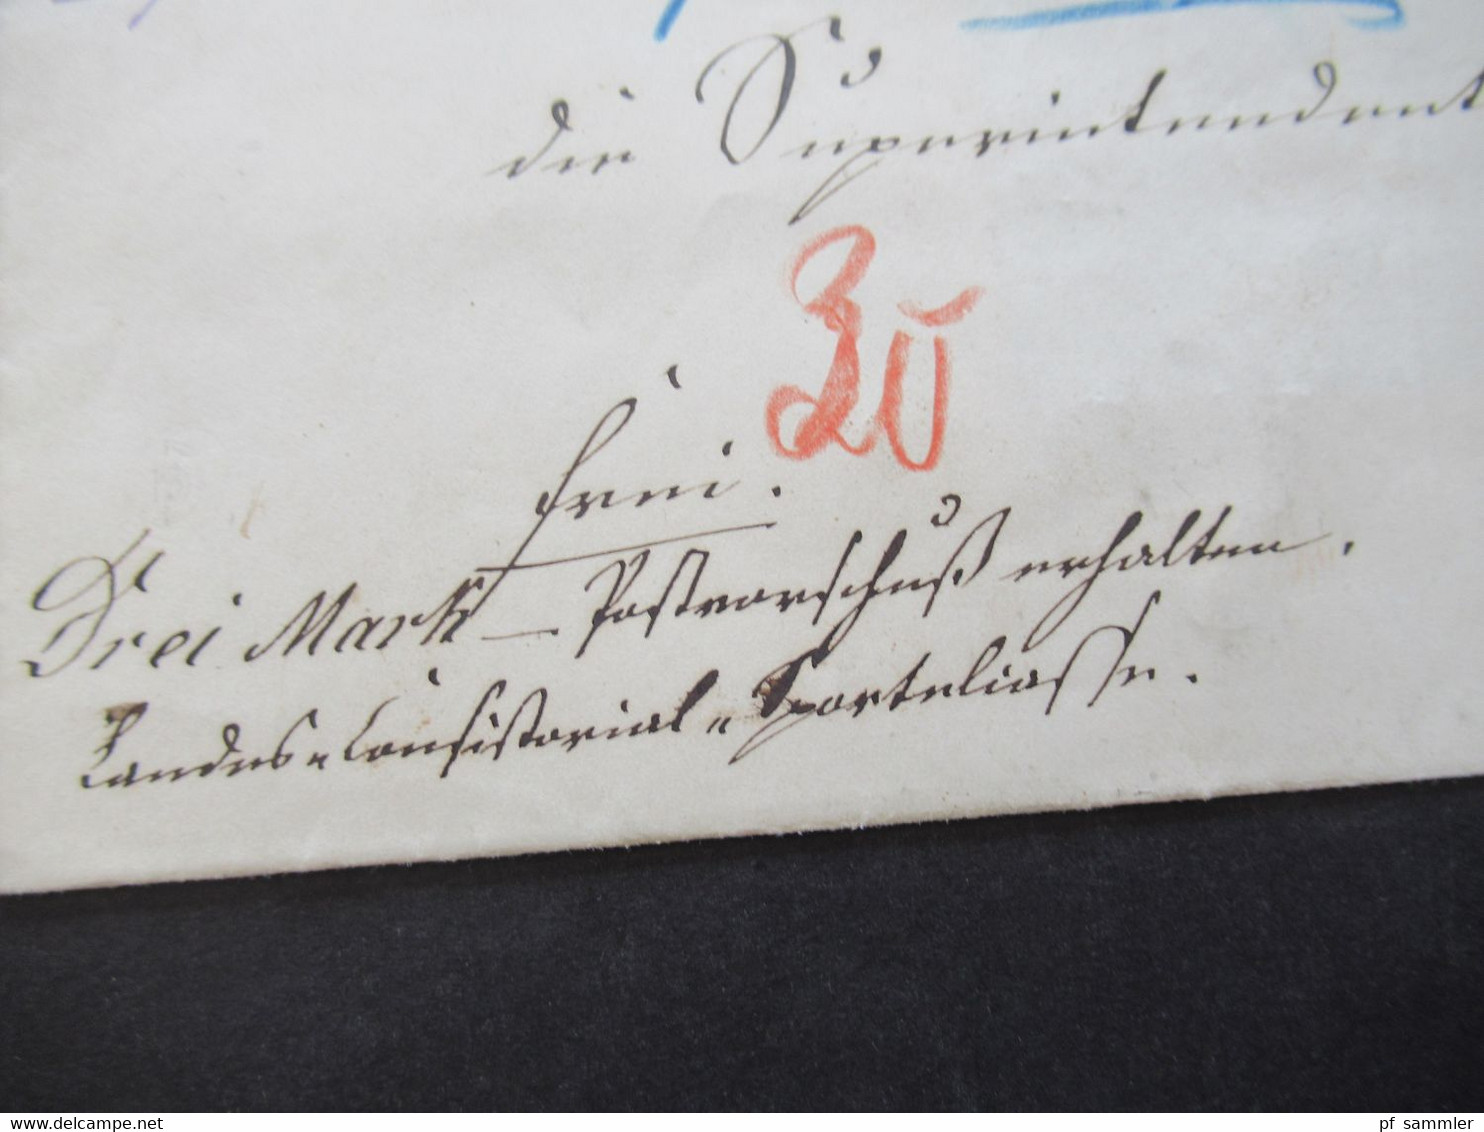 die Superintendent
30
frei.
Drei Mark — Postvorschuß erhalten.
Landes-Consistorial-Sportelcasse.
pf_sammler
www.delcampe.net